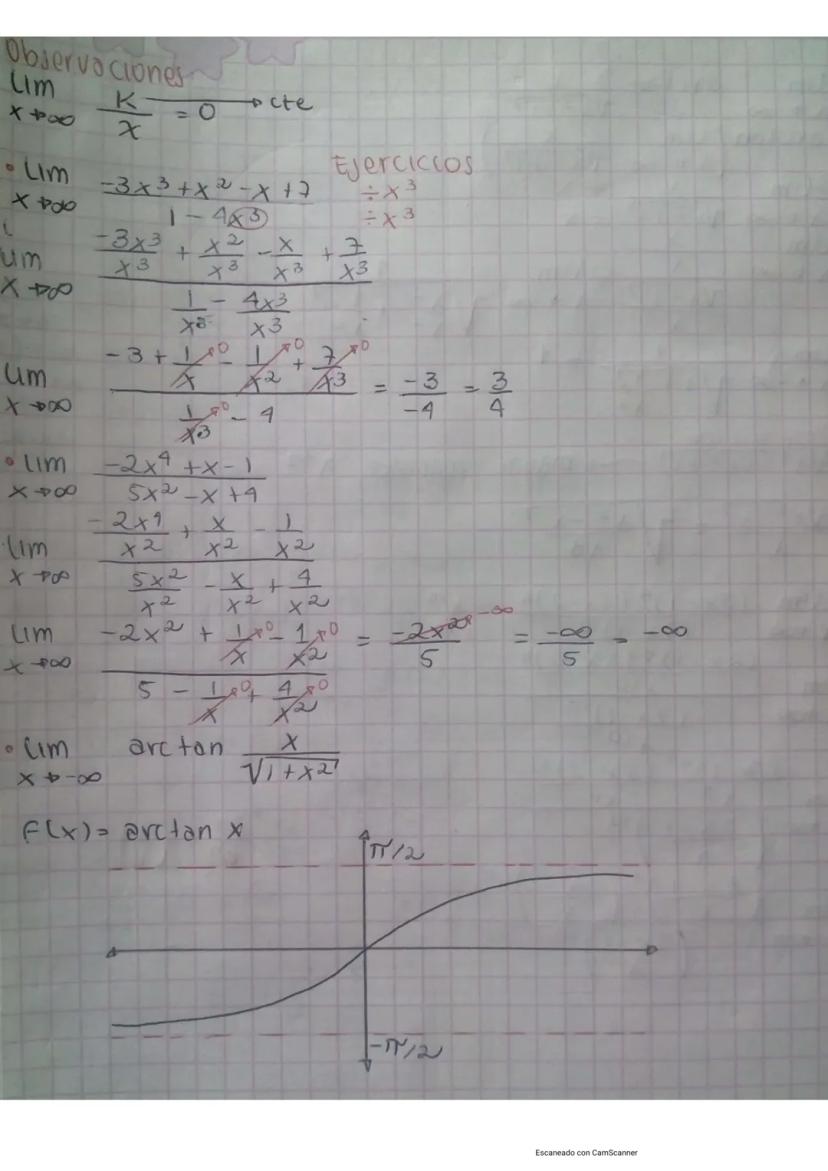 Observaciones
lim x→∞ K/x = 0 → cte
Ejercicios
• lim x→∞ (-3x³ + x² - x + 7)/(1 - 4x³) ÷x³ ÷x³
lim x→∞ (-3x³/x³ + x²/x³ - x/x³ + 7/x³)/(1/x³ - 4x³/x³)
lim x→∞ (-3 + 1/x→0 - 1/x²→0 + 7/x³→0)/(1/x³→0 - 4) = -3/-4 = 3/4
• lim x→∞ (-2x⁴ + x - 1)/(5x² - x + 4)
lim x→∞ (-2x⁴/x² + x/x² - 1/x²)/(5x²/x² - x/x² + 4/x²)
lim x→∞ (-2x² + 1/x→0 - 1/x²→0)/(5 - 1/x→0 + 4/x²→0) = -2x²→-∞/5 = -∞/5 = -∞
• lim x→-∞ arctan x/√(1+x²)
F(x) = arctan x
π/2
-π/2
Escaneado con CamScanner